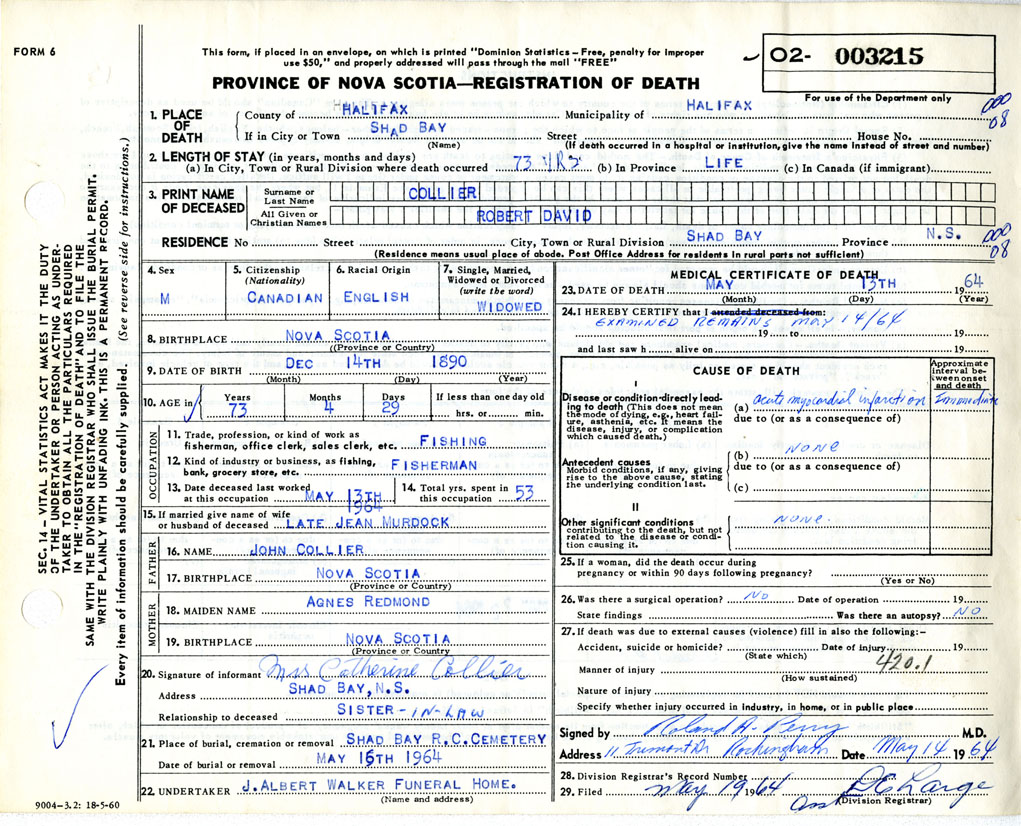 FORM 6
This form, if placed in an envelope, on which is printed "Dominion Statistics – Free, penalty for improper
use $50," and properly addressed will pass through the mail "FREE"
02- 003215
PROVINCE OF NOVA SCOTIA—REGISTRATION OF DEATH
For use of the Department only
1. PLACE OF DEATH
County of HALIFAX Municipality of HALIFAX
000
08
If in City or Town SHAD BAY Street House No.
(Name) (If death occurred in a hospital or institution, give the name instead of street and number)
2. LENGTH OF STAY (in years, months and days)
(a) In City, Town or Rural Division where death occurred 73 YRS (b) In Province LIFE (c) In Canada (if immigrant)
3. PRINT NAME OF DECEASED
Surname or Last Name COLLIER
All Given or Christian Names ROBERT DAVID
RESIDENCE No Street City, Town or Rural Division SHAD BAY Province N.S.
000
08
(Residence means usual place of abode. Post Office Address for residents in rural parts not sufficient)
4. Sex
M
5. Citizenship
(Nationality)
CANADIAN
6. Racial Origin
ENGLISH
7. Single, Married,
Widowed or Divorced
(write the word)
WIDOWED
8. BIRTHPLACE NOVA SCOTIA
(Province or Country)
9. DATE OF BIRTH DEC 14TH 1890
(Month) (Day) (Year)
10. AGE in
Years 73
Months 4
Days 29
If less than one day old
hrs. or min.
OCCUPATION
11. Trade, profession, or kind of work as
fisherman, office clerk, sales clerk, etc. FISHING
12. Kind of industry or business, as fishing,
bank, grocery store, etc. FISHERMAN
13. Date deceased last worked
at this occupation MAY 13TH
1964
14. Total yrs. spent in
this occupation 53
15. If married give name of wife
or husband of deceased LATE JEAN MURDOCK
FATHER
16. NAME JOHN COLLIER
17. BIRTHPLACE NOVA SCOTIA
(Province or Country)
MOTHER
18. MAIDEN NAME AGNES REDMOND
19. BIRTHPLACE NOVA SCOTIA
(Province or Country)
20. Signature of informant Mrs Catherine Collier
Address SHAD BAY, N.S.
Relationship to deceased SISTER-IN-LAW
21. Place of burial, cremation or removal SHAD BAY R.C. CEMETERY
Date of burial or removal MAY 15TH 1964
22. UNDERTAKER J. ALBERT WALKER FUNERAL HOME.
(Name and address)
9004-3.2: 18-5-60
MEDICAL CERTIFICATE OF DEATH
23. DATE OF DEATH MAY 13TH 1964
(Month) (Day) (Year)
24. I HEREBY CERTIFY that I attended deceased from:
EXAMINED REMAINS MAY 14/64
19 to 19
and last saw h alive on 19
CAUSE OF DEATH
Approximate
interval be-
tween onset
and death
I
Disease or condition directly lead-
ing to death (This does not mean
the mode of dying, e.g., heart fail-
ure, asthenia, etc. It means the
disease, injury, or complication
which caused death.)
(a) acute myocardial infarction Immediate
due to (or as a consequence of)
Antecedent causes
Morbid conditions, if any, giving
rise to the above cause, stating
the underlying condition last.
(b) NONE
due to (or as a consequence of)
(c)
II
Other significant conditions
contributing to the death, but not
related to the disease or condi-
tion causing it.
NONE.
25. If a woman, did the death occur during
pregnancy or within 90 days following pregnancy?
(Yes or No)
26. Was there a surgical operation? NO Date of operation 19
State findings Was there an autopsy? NO
27. If death was due to external causes (violence) fill in also the following:–
Accident, suicide or homicide? Date of injury 19
(State which)
420.1
Manner of injury
(How sustained)
Nature of injury
Specify whether injury occurred in industry, in home, or in public place
Signed by Roland A. Perry M.D.
Address 11 Tremont Dr Rockingham Date May 14 1964
28. Division Registrar's Record Number
29. Filed May 19 1964
Asst D C Large
(Division Registrar)
SEC. 14 – VITAL STATISTICS ACT MAKES IT THE DUTY
OF THE UNDERTAKER OR PERSON ACTING AS UNDER-
TAKER TO OBTAIN ALL THE PARTICULARS REQUIRED
IN THE "REGISTRATION OF DEATH" AND TO FILE THE
SAME WITH THE DIVISION REGISTRAR WHO SHALL ISSUE THE BURIAL PERMIT.
WRITE PLAINLY WITH UNFADING INK. THIS IS A PERMANENT RECORD.
Every item of information should be carefully supplied. (See reverse side for instructions.)